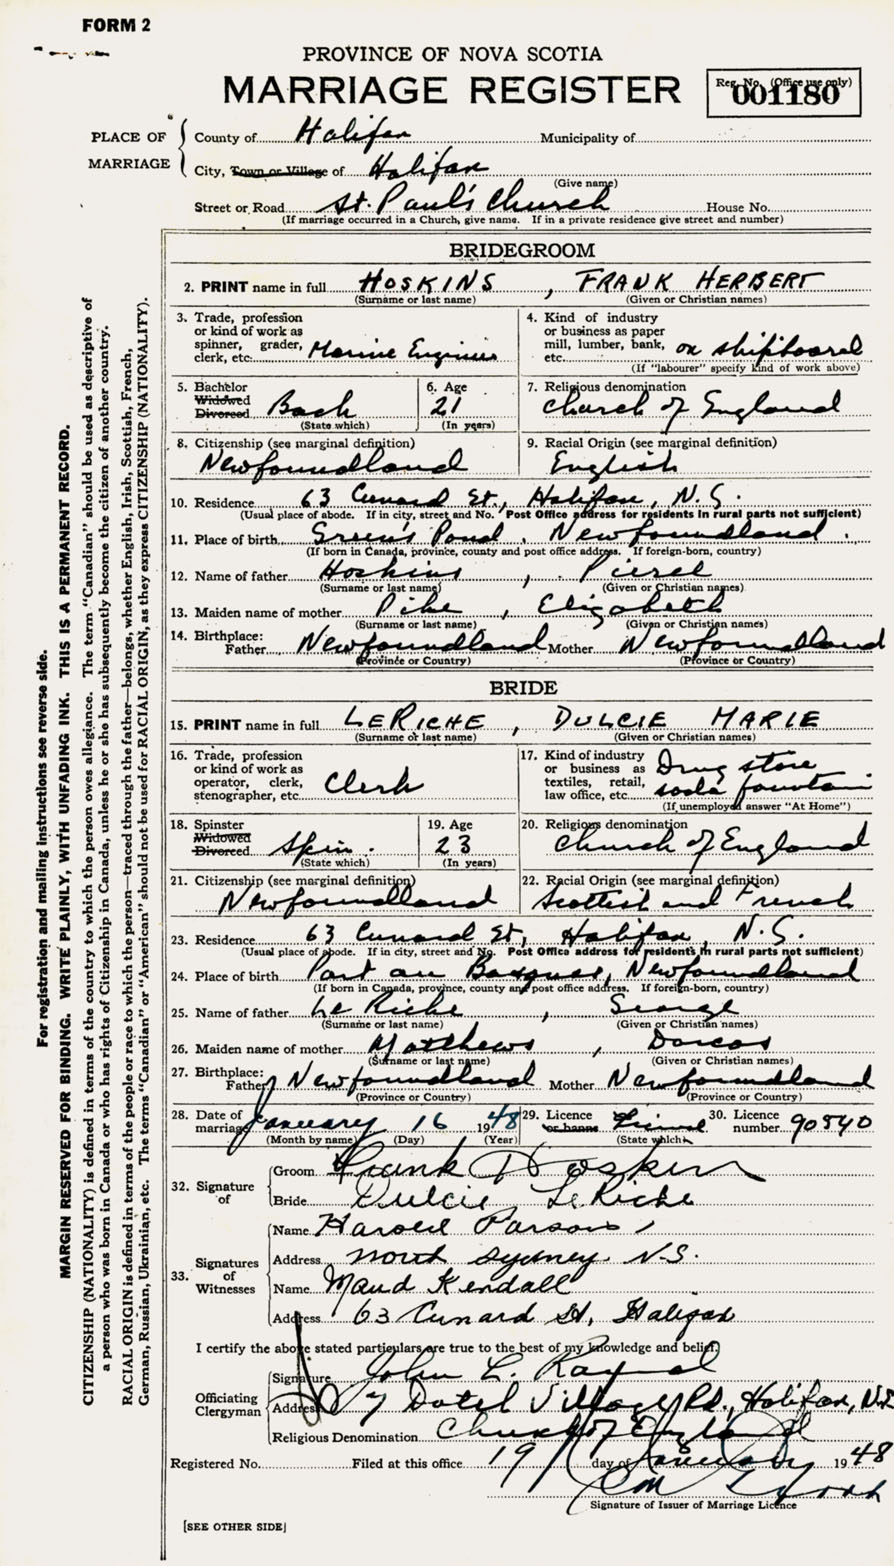 FORM 2
PROVINCE OF NOVA SCOTIA
MARRIAGE REGISTER
Reg. No. (Office use only)
001180
PLACE OF MARRIAGE
County of Halifax Municipality of
City, Town or Village of Halifax
(Give name)
Street or Road St. Paul's Church House No.
(If marriage occurred in a Church, give name. If in a private residence give street and number)
BRIDEGROOM
2. PRINT name in full HOSKINS, FRANK HERBERT
(Surname or last name) (Given or Christian names)
3. Trade, profession or kind of work as spinner, grader, clerk, etc. Marine Engineer
4. Kind of industry or business as paper mill, lumber, bank, etc. on shipboard
(If "labourer" specify kind of work above)
5. Bachelor Widowed Divorced Bach
(State which)
6. Age 21
(In years)
7. Religious denomination
Church of England
8. Citizenship (see marginal definition)
Newfoundland
9. Racial Origin (see marginal definition)
English
10. Residence 63 Cunard St., Halifax, N.S.
(Usual place of abode. If in city, street and No. Post Office address for residents in rural parts not sufficient)
11. Place of birth Greens Pond, Newfoundland.
(If born in Canada, province, county and post office address. If foreign-born, country)
12. Name of father Hoskins,
(Surname or last name) (Given or Christian names)
13. Maiden name of mother Pike, Elizabeth
(Surname or last name) (Given or Christian names)
14. Birthplace:
Father Newfoundland Mother Newfoundland
(Province or Country) (Province or Country)
BRIDE
15. PRINT name in full LERICHE, DULCIE MARIE
(Surname or last name) (Given or Christian names)
16. Trade, profession or kind of work as operator, clerk, stenographer, etc. Clerk
17. Kind of industry or business as textiles, retail, law office, etc. Drug store soda fountain
(If unemployed answer "At Home")
18. Spinster Widowed Divorced Spin.
(State which)
19. Age 23
(In years)
20. Religious denomination
Church of England
21. Citizenship (see marginal definition)
Newfoundland
22. Racial Origin (see marginal definition)
Scottish and French
23. Residence 63 Cunard St, Halifax, N.S.
(Usual place of abode. If in city, street and No. Post Office address for residents in rural parts not sufficient)
24. Place of birth Port au Basques, Newfoundland
(If born in Canada, province, county and post office address. If foreign-born, country)
25. Name of father Le Riche, George
(Surname or last name) (Given or Christian names)
26. Maiden name of mother Matthews, Dorcas
(Surname or last name) (Given or Christian names)
27. Birthplace:
Father Newfoundland Mother Newfoundland
(Province or Country) (Province or Country)
28. Date of marriage January 16 1948
(Month by name) (Day) (Year)
29. Licence or banns
(State which)
30. Licence number 90840
32. Signature of
Groom Frank Hoskins
Bride Dulcie LeRiche
33. Signatures of Witnesses
Name Harold Parsons
Address North Sydney N.S.
Name Maud Kendall
Address 63 Cunard St, Halifax
I certify the above stated particulars are true to the best of my knowledge and belief.
Officiating Clergyman
Signature John L.
Address 7 Dutch Village Rd., Halifax, N.S.
Religious Denomination Church of England
Registered No. Filed at this office 19 day of January 1948
Signature of Issuer of Marriage Licence
[SEE OTHER SIDE]
For registration and mailing instructions see reverse side.
MARGIN RESERVED FOR BINDING. WRITE PLAINLY, WITH UNFADING INK. THIS IS A PERMANENT RECORD.
CITIZENSHIP (NATIONALITY) is defined in terms of the country to which the person owes allegiance. The term "Canadian" should be used as descriptive of
a person who was born in Canada or who has rights of Citizenship in Canada, unless he or she has subsequently become the citizen of another country.
RACIAL ORIGIN is defined in terms of the people or race to which the person—traced through the father—belongs, whether English, Irish, Scottish, French,
German, Russian, Ukrainian, etc. The terms "Canadian" or "American" should not be used for RACIAL ORIGIN, as they express CITIZENSHIP (NATIONALITY).